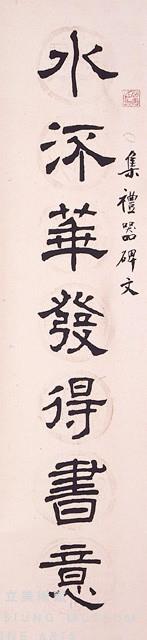 集禮器碑文
水流華發得書意
立美術
SIUNG MUSEUM
INE ARTS